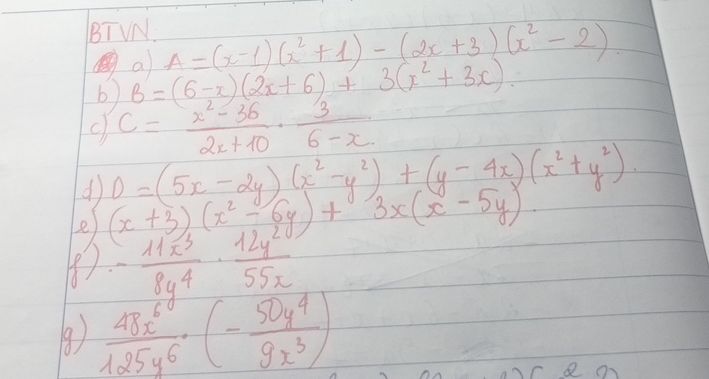 BTVN.
a) A = (x-1)(x² + 1) - (2x + 3)(x² - 2).
b) B = (6-x)(2x+6) + 3(x² + 3x).
c) C = \frac{x² - 36}{2x+10} · \frac{3}{6-x}.
d) D = (5x - 2y)(x² - y²) + (y - 4x)(x² + y²).
e) (x + 3)(x² - 6y) + 3x(x - 5y).
f) - \frac{11x³}{8y⁴} · \frac{12y²}{55x}
g) \frac{48x⁶}{125y⁶} · (- \frac{50y⁴}{9x³})